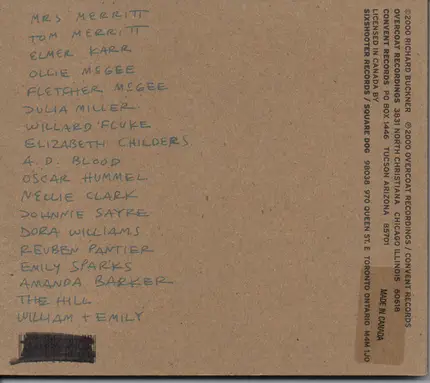 MRS MERRITT
TOM MERRITT
ELMER KARR
OLLIE McGEE
FLETCHER McGEE
JULIA MILLER
WILLARD FLUKE
ELIZABETH CHILDERS
A.D. BLOOD
OSCAR HUMMEL
NELLIE CLARK
JOHNNIE SAYRE
DORA WILLIAMS
REUBEN PANTIER
EMILY SPARKS
AMANDA BARKER
THE HILL
WILLIAM + EMILY
©2000 RICHARD BUCKNER ℗ 2000 OVERCOAT RECORDINGS / CONVENT RECORDS
OVERCOAT RECORDINGS 3831 NORTH CHRISTIANA CHICAGO ILLINOIS 60618
CONVENT RECORDS PO BOX 1446 TUCSON ARIZONA 85701
LICENSED IN CANADA BY
SIXSHOOTER RECORDS / SQUARE DOG 98036 970 QUEEN ST. E TORONTO ONTARIO M4M 1J0
MADE IN CANADA